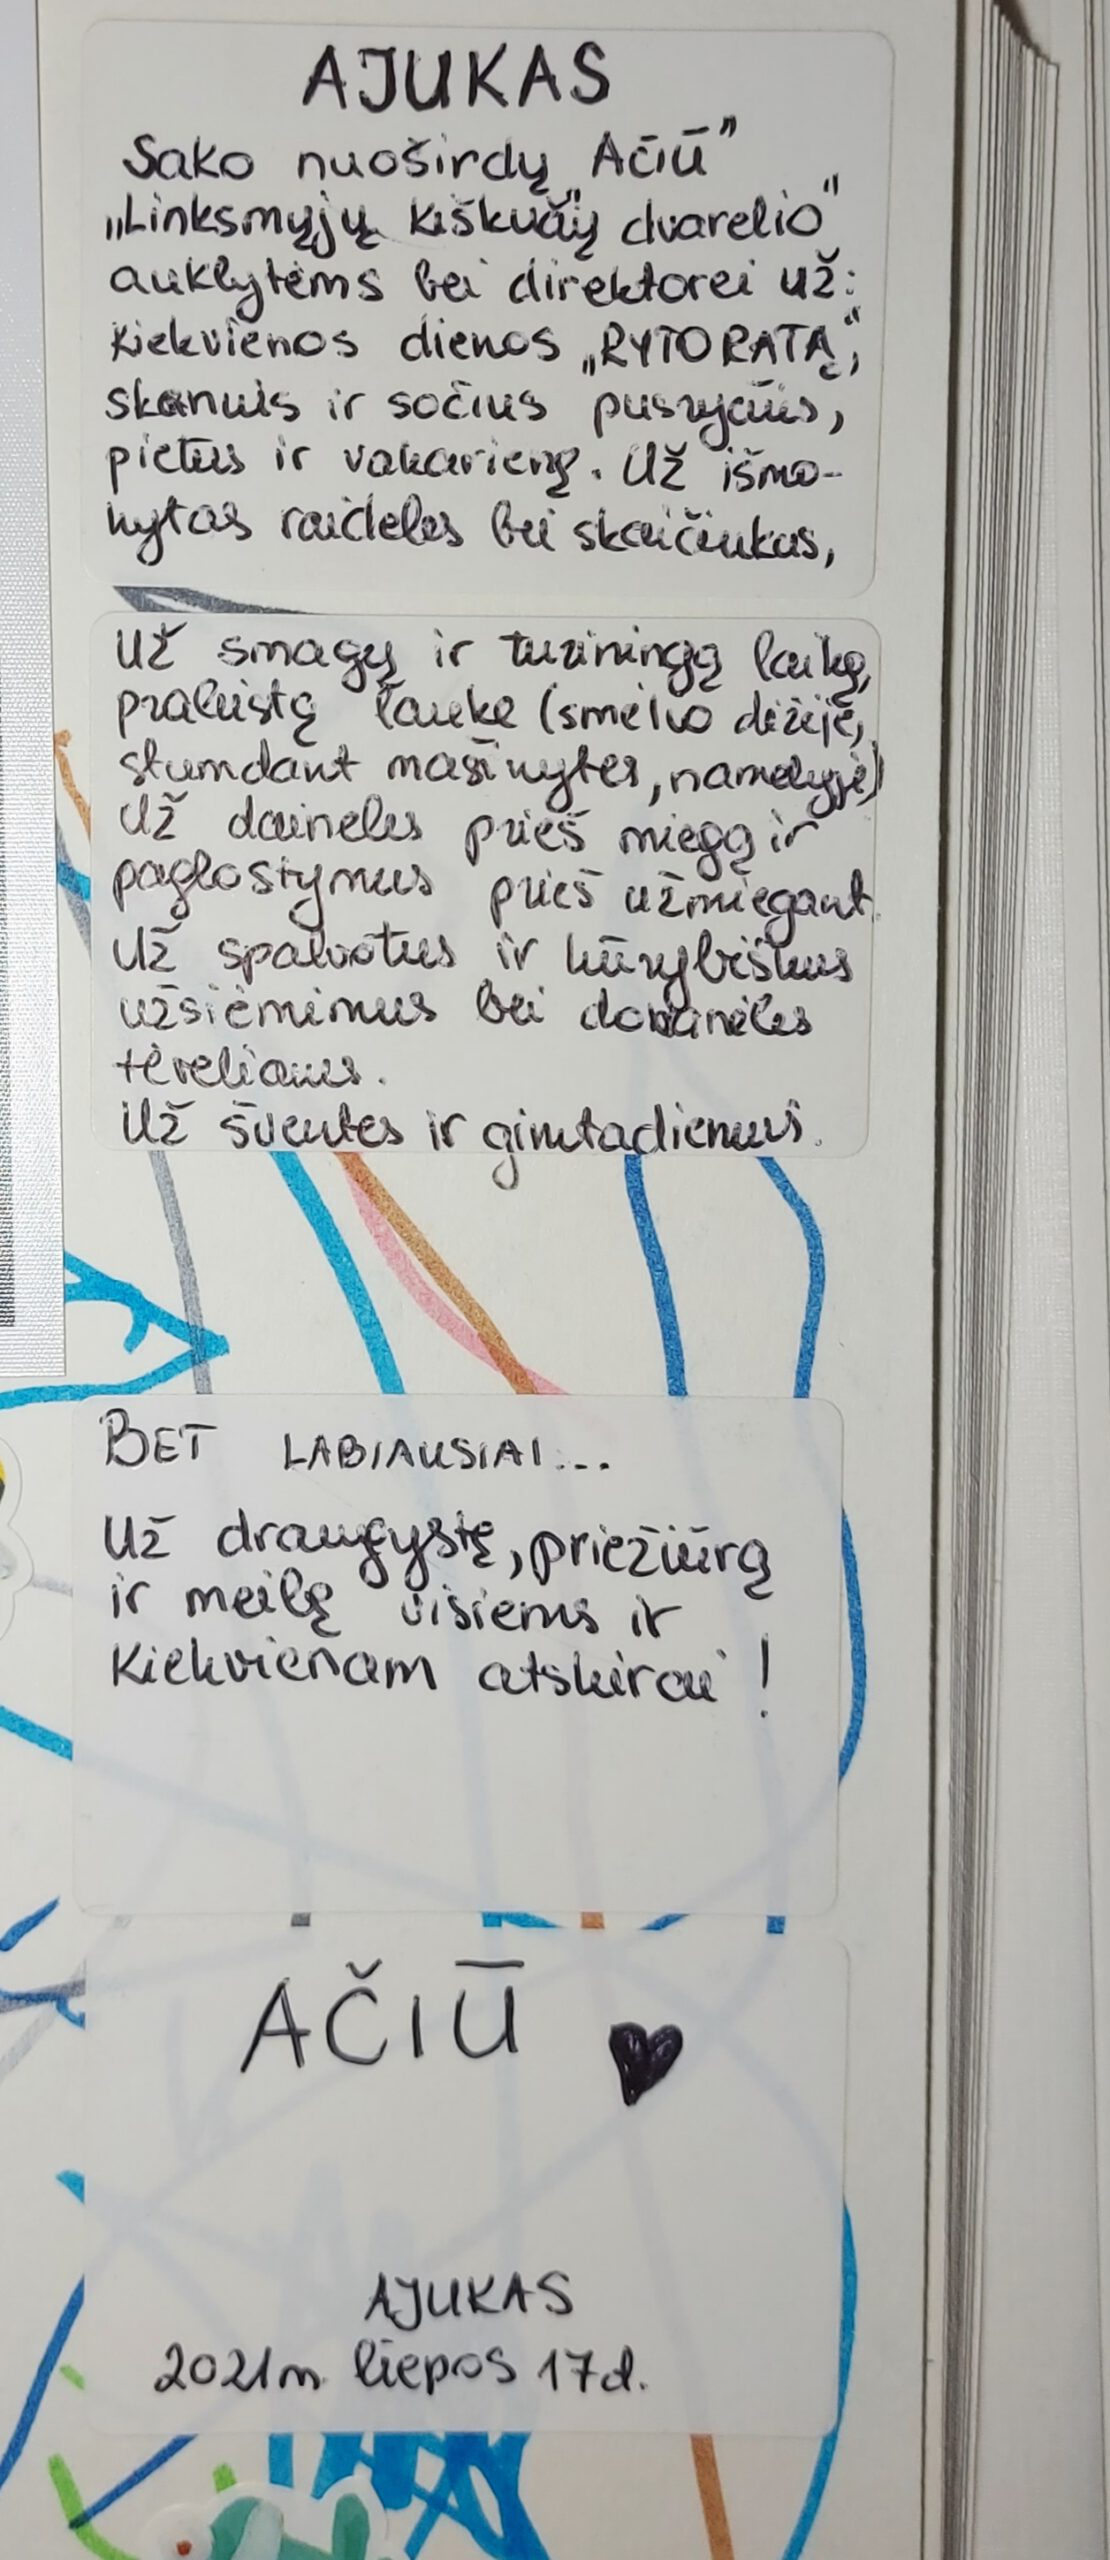 AJUKAS
Sako nuoširdų „Ačiū”
„Linksmųjų kiškučių dvarelio”
auklytėms bei direktorei už:
kiekvienos dienos „RYTO RATĄ“,
skanius ir sočius pusryčius,
pietus ir vakarienę. Už išmo-
kytas raideles bei skaičiukus,
Už smagų ir turiningą laiką,
praleistą lauke (smėlio dėžėje,
stumdant mašinytes, namelyje)
Už daineles prieš miegą ir
paglostymus prieš užmiegant.
Už spalvotus ir kūrybiškus
užsiėmimus bei dovanėles
tėveliams.
Už šventes ir gimtadienius.
BET LABIAUSIAI...
Už draugystę, priežiūrą
ir meilę visiems ir
kiekvienam atskirai !
AČIŪ ♥
AJUKAS
2021m. liepos 17d.